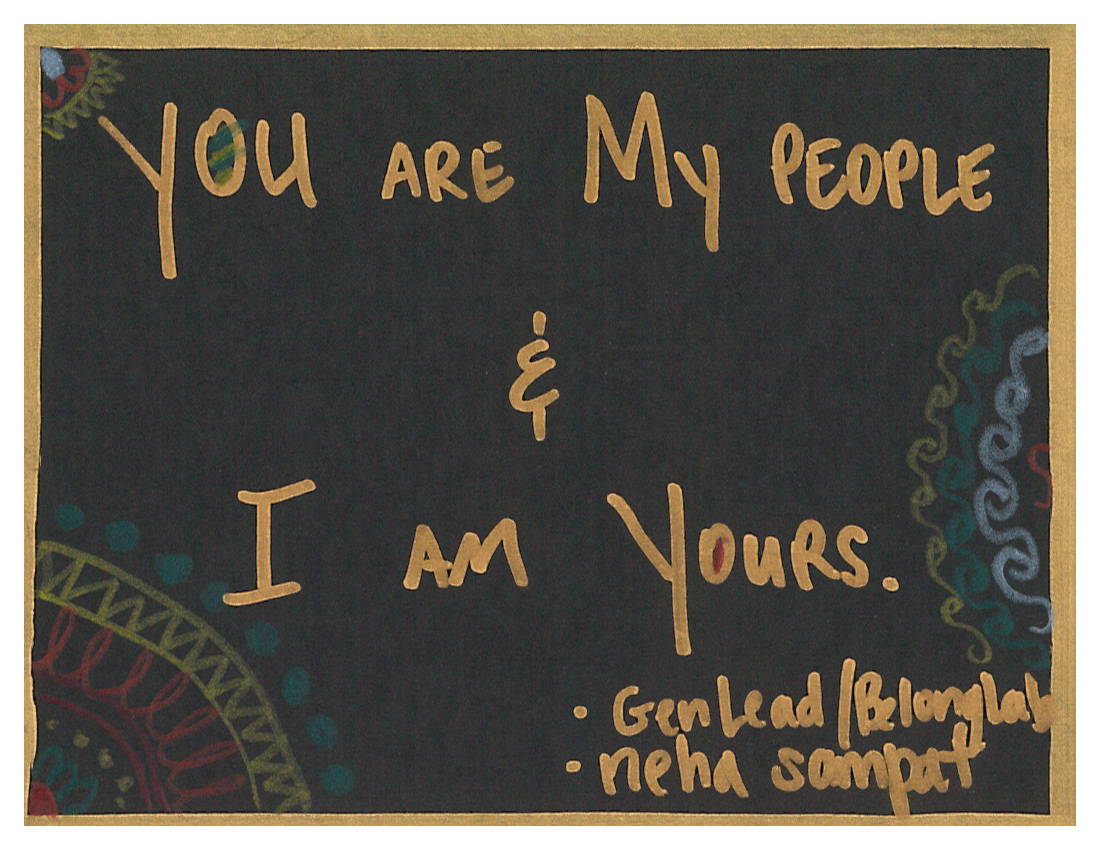 YOU ARE My PEOPLE
&
I AM YOURS.
• GenLead/BelongLab
• neha sampat